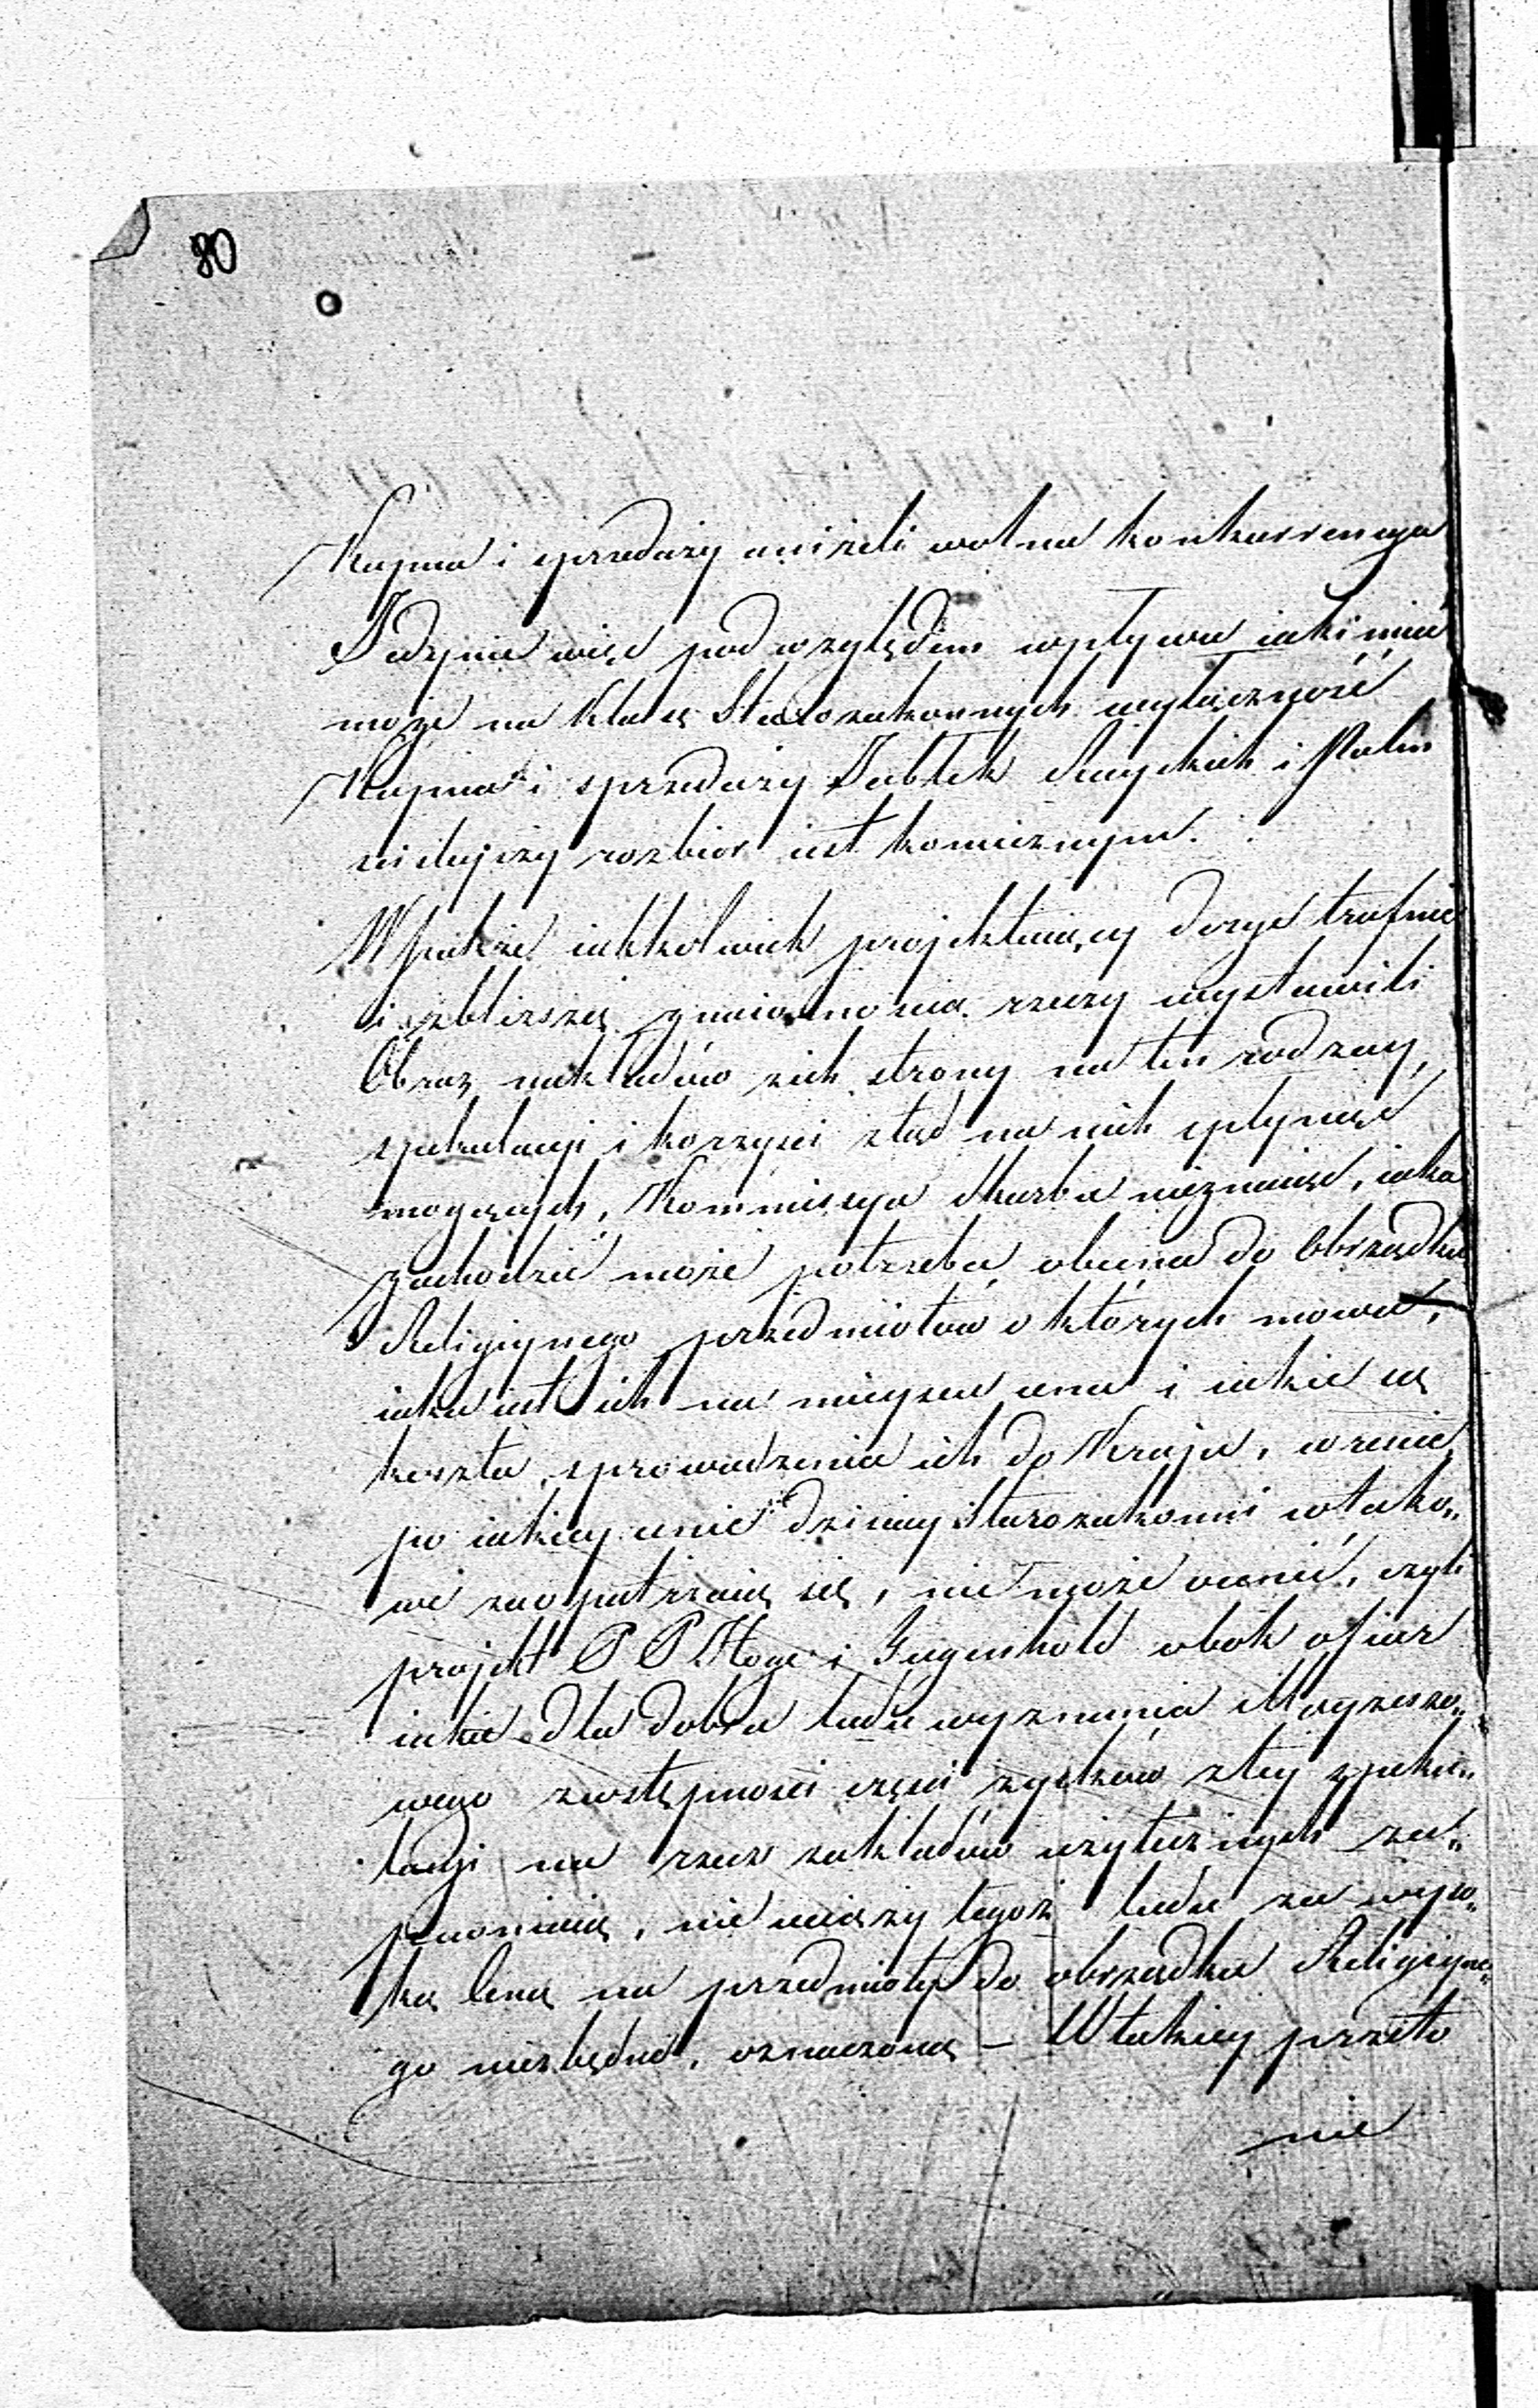 80
Kupna i sprzedaży aniżeli wolna konkurrencya
Jedynie więc pod względem wpływu iaki mieć
może na klassę Starozakonnych wyłączność
Kupna i sprzedaży Jabłek Rayskich i Palm
ninieyszy rozbior iest koniecznym.
Wszakże iakkolwiek projektuiący dosyć trafnie
i z bliższą znaiomością rzeczy wystawili
Obraz nakładów z ich strony na ten rodzay
spekulacyi i korzyści ztąd na nich spłynąć
mogących, Kommissya Skarbu nieznaiąc, iaka
zachodzić może potrzeba obecna do Obrządku
Religiynego przedmiotów o których mowa,
iaka iest ich na mieyscu cena i iakie są
koszta sprowadzenia ich do Kraju, wreszcie
po iakiey cenie dzisiay Starozakonni w tako„
we zaopatrzaią się, nie może ocenić, czyli
projekt P P Hoge i Tugenhold obok ofiar
iakie dla dobra ludu wyznania Mojżeszo„
wego z odstępności części zysków z tey speku„
lacyi na rzecz zakładów użytecznych za„
pewniaią, nie uciąży tegoż ludu za wyso„
ką ceną na przedmioty do obrządku Religiyne„
go niezbędne, oznaczoną – W takiey przeto
nie